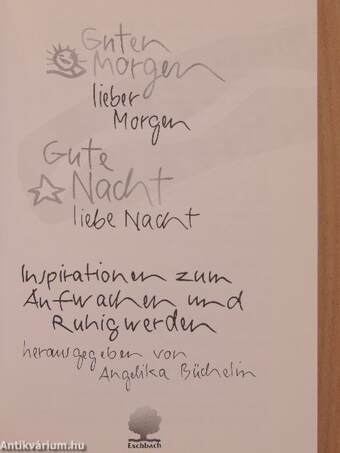 Guten
Morgen
lieber
Morgen
Gute
Nacht
liebe Nacht
Inspirationen zum
Aufwachen und
Ruhigwerden
herausgegeben von
Angelika Büchelin
Eschbach
Antikvárium.hu